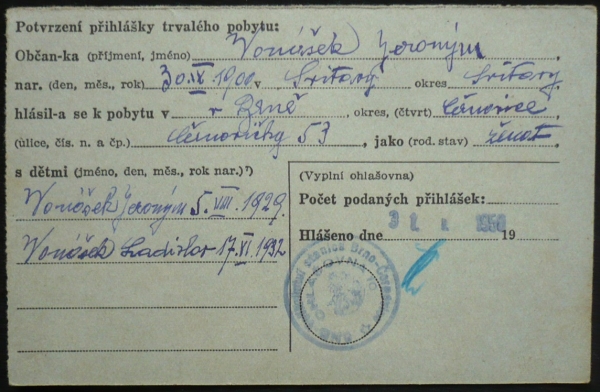 Potvrzení přihlášky trvalého pobytu:
Občan-ka (příjmení, jméno) Vonášek Jeroným
nar. (den, měs., rok) 30. IX 1900 v Svitavy okres Svitavy
hlásil-a se k pobytu v Brně okres, (čtvrt) Černovice
(ulice, čís. n. a čp.) 53, jako (rod. stav) ženat
s dětmi (jméno, den, měs., rok nar.)
Vonášek Jeroným 5. VIII. 1929.
Vonášek Ladislav 17. XI. 1932
(Vyplní ohlašovna)
Počet podaných přihlášek:
Hlášeno dne 19
stanice Brno